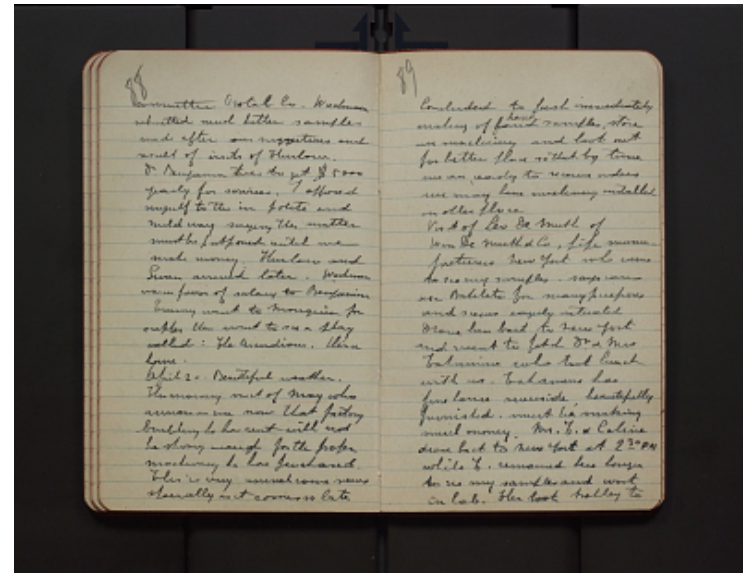 88
Committee Crystal Co. Wiechmann
submitted much better samples
and after our suggestions and
result of visits of Thurlow.
Dr Benjamin tries to get $ 5000
yearly for services. I opposed
myself to this in polite and
mild way saying this matter
must be postponed until we
make money. Thurlow and
Swan arrived later. Wiechmann
was in favor of salary to Benjamin
Evening went to for
supper then went to see a play
called: The Arcadians. Then
home.
April 20. Beautiful weather.
This morning visit of May who
announces me now that factory
building he has rent will not
be strong enough for the proper
machinery he has purchased.
This is very unwelcome news
specially as it comes so late
89
Concluded to push immediately
making of hand samples, store
in machinery and look out
for better place so that by time
we are ready to receive orders
we may have machinery installed
in other place.
Visit of Leo De Muth of
Wm De Muth & Co, pipe manu-
facturers New York who came
to see my samples. says can
use Bakelite for many purposes
and seems eagerly interested
Drove him back to New York
and went to fetch Dr & Mrs
Takamine who took lunch
with us. Takamine has
fine house riverside, beautifully
furnished. must be making
much money. Mrs. T. & Celine
drove back to New York at 2 30 PM
while T. remained here longer
to see my samples and work
in Lab. Then took trolley to